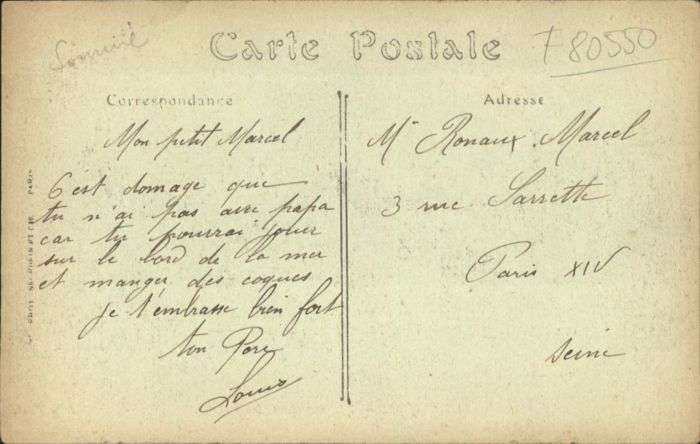 Carte Postale
F 80550
Correspondance
Adresse
Mon petit Marcel
C'est domage que
tu n'ai pas avec papa
car tu pourrai jouer
sur le bord de la mer
et manger des coques
je t'embrasse bien fort
ton Père
Louis
Mr Ronaux Marcel
3 rue Sarrette
Paris XIV
Seine